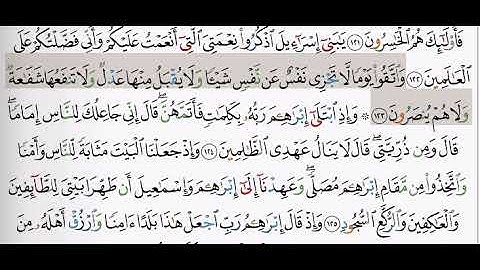 فَأُولَٰئِكَ هُمُ الْخَاسِرُونَ ١٢١ يَا بَنِي إِسْرَائِيلَ اذْكُرُوا نِعْمَتِيَ الَّتِي أَنْعَمْتُ عَلَيْكُمْ وَأَنِّي فَضَّلْتُكُمْ عَلَى
الْعَالَمِينَ ١٢٢ وَاتَّقُوا يَوْمًا لَّا تَجْزِي نَفْسٌ عَن نَّفْسٍ شَيْئًا وَلَا يُقْبَلُ مِنْهَا عَدْلٌ وَلَا تَنفَعُهَا شَفَاعَةٌ
وَلَا هُمْ يُنصَرُونَ ١٢٣ ۞ وَإِذِ ابْتَلَىٰ إِبْرَاهِيمَ رَبُّهُ بِكَلِمَاتٍ فَأَتَمَّهُنَّ ۖ قَالَ إِنِّي جَاعِلُكَ لِلنَّاسِ إِمَامًا ۖ
قَالَ وَمِن ذُرِّيَّتِي ۖ قَالَ لَا يَنَالُ عَهْدِي الظَّالِمِينَ ١٢٤ وَإِذْ جَعَلْنَا الْبَيْتَ مَثَابَةً لِّلنَّاسِ وَأَمْنًا
وَاتَّخِذُوا مِن مَّقَامِ إِبْرَاهِيمَ مُصَلًّى ۖ وَعَهِدْنَا إِلَىٰ إِبْرَاهِيمَ وَإِسْمَاعِيلَ أَن طَهِّرَا بَيْتِيَ لِلطَّائِفِينَ
وَالْعَاكِفِينَ وَالرُّكَّعِ السُّجُودِ ١٢٥ وَإِذْ قَالَ إِبْرَاهِيمُ رَبِّ اجْعَلْ هَٰذَا بَلَدًا آمِنًا وَارْزُقْ أَهْلَهُ مِنَ